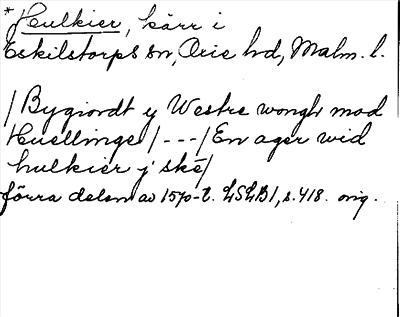 *Hulkier, kärr i
Eskilstorps sn, Oxie hd, Malm. l.
/Bygiordt y Westre wongh mod
Huellinge/---/En ager wid
hulkier j skě/
förra delen av 1570-t. LSLB1, s. 418. orig.